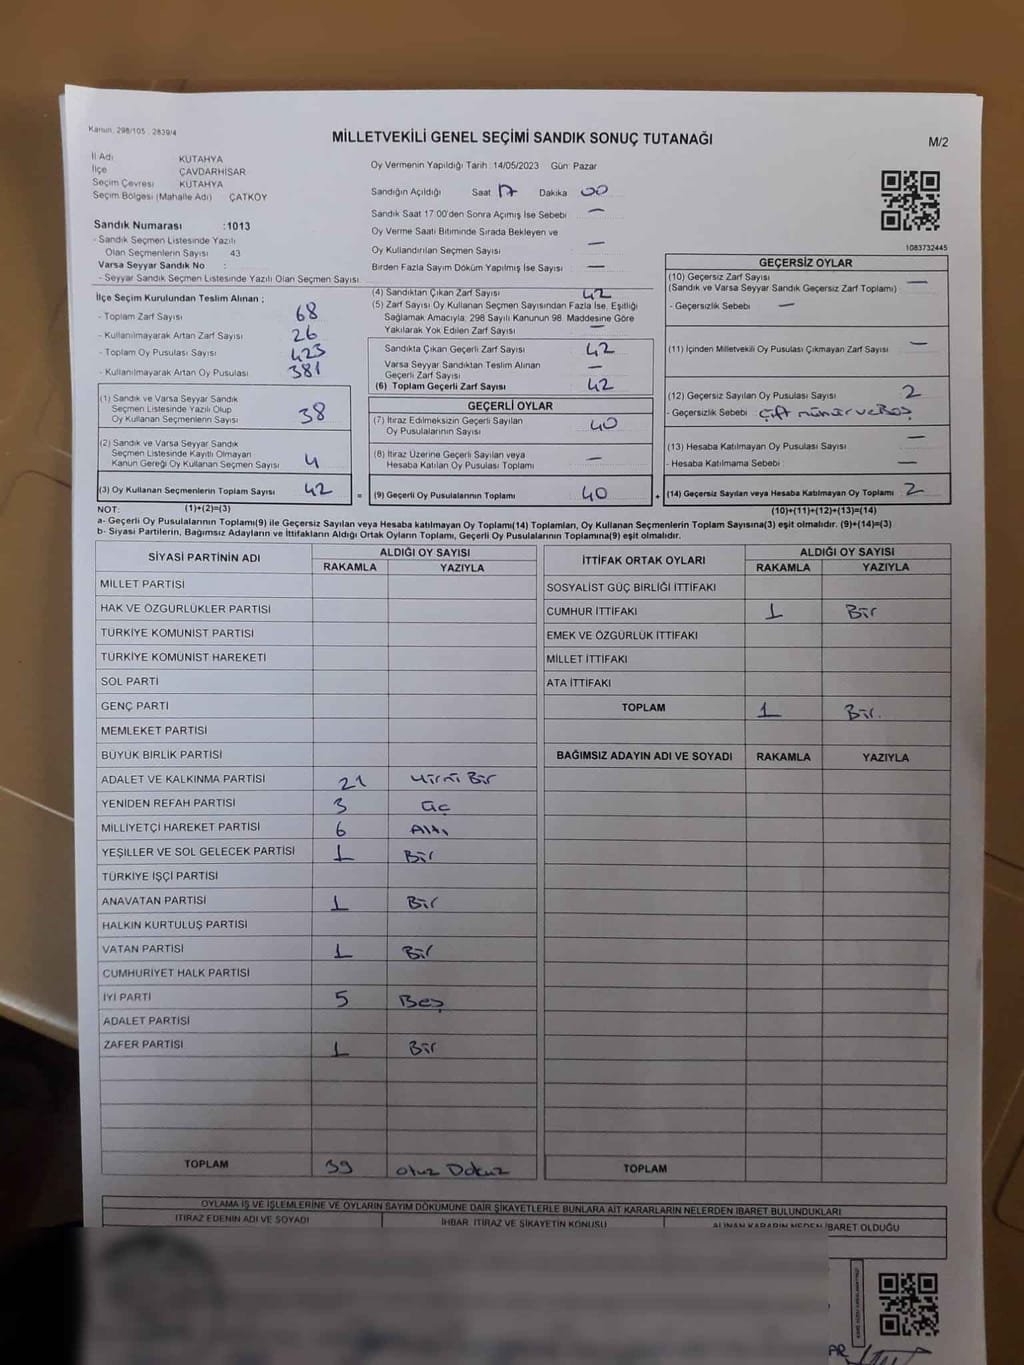 Kanun: 298/105 : 2839/4
MİLLETVEKİLİ GENEL SEÇİMİ SANDIK SONUÇ TUTANAĞI
M/2
İl Adı KÜTAHYA
İlçe ÇAVDARHİSAR
Seçim Çevresi KÜTAHYA
Seçim Bölgesi (Mahalle Adı) ÇATKÖY
Oy Vermenin Yapıldığı Tarih :14/05/2023 Gün: Pazar
Sandığın Açıldığı Saat 17 Dakika 00
Sandık Saat 17:00'den Sonra Açımış İse Sebebi : —
Oy Verme Saati Bitiminde Sırada Bekleyen ve
Oy Kullandırılan Seçmen Sayısı —
Birden Fazla Sayım Döküm Yapılmış İse Sayısı —
Sandık Numarası :1013
- Sandık Seçmen Listesinde Yazılı
Olan Seçmenlerin Sayısı 43
Varsa Seyyar Sandık No :
- Seyyar Sandık Seçmen Listesinde Yazılı Olan Seçmen Sayısı
1083732445
İlçe Seçim Kurulundan Teslim Alınan ;
- Toplam Zarf Sayısı 68
- Kullanılmayarak Artan Zarf Sayısı 26
- Toplam Oy Pusulası Sayısı 423
- Kullanılmayarak Artan Oy Pusulası 381
(1) Sandık ve Varsa Seyyar Sandık
Seçmen Listesinde Yazılı Olup
Oy Kullanan Seçmenlerin Sayısı 38
(2) Sandık ve Varsa Seyyar Sandık
Seçmen Listesinde Kayıtlı Olmayan
Kanun Gereği Oy Kullanan Seçmen Sayısı 4
(3) Oy Kullanan Seçmenlerin Toplam Sayısı 42
(4) Sandıktan Çıkan Zarf Sayısı 42
(5) Zarf Sayısı Oy Kullanan Seçmen Sayısından Fazla İse, Eşitliği
Sağlamak Amacıyla; 298 Sayılı Kanunun 98. Maddesine Göre
Yakılarak Yok Edilen Zarf Sayısı —
Sandıkta Çıkan Geçerli Zarf Sayısı 42
Varsa Seyyar Sandıktan Teslim Alınan
Geçerli Zarf Sayısı —
(6) Toplam Geçerli Zarf Sayısı 42
GEÇERLİ OYLAR
(7) İtiraz Edilmeksizin Geçerli Sayılan
Oy Pusulalarının Sayısı 40
(8) İtiraz Üzerine Geçerli Sayılan veya
Hesaba Katılan Oy Pusulası Toplamı —
= (9) Geçerli Oy Pusulalarının Toplamı 40
GEÇERSİZ OYLAR
(10) Geçersiz Zarf Sayısı
(Sandık ve Varsa Seyyar Sandık Geçersiz Zarf Toplamı) —
- Geçersizlik Sebebi —
(11) İçinden Milletvekili Oy Pusulası Çıkmayan Zarf Sayısı —
(12) Geçersiz Sayılan Oy Pusulası Sayısı 2
- Geçersizlik Sebebi Çift mühür ve Boş
(13) Hesaba Katılmayan Oy Pusulası Sayısı —
- Hesaba Katılmama Sebebi —
+ (14) Geçersiz Sayılan veya Hesaba Katılmayan Oy Toplamı 2
NOT: (1)+(2)=(3) (10)+(11)+(12)+(13)=(14)
a- Geçerli Oy Pusulalarının Toplamı(9) ile Geçersiz Sayılan veya Hesaba katılmayan Oy Toplamı(14) Toplamları, Oy Kullanan Seçmenlerin Toplam Sayısına(3) eşit olmalıdır. (9)+(14)=(3)
b- Siyasi Partilerin, Bağımsız Adayların ve İttifakların Aldığı Ortak Oyların Toplamı, Geçerli Oy Pusulalarının Toplamına(9) eşit olmalıdır.
SİYASİ PARTİNİN ADI ALDIĞI OY SAYISI
RAKAMLA YAZIYLA
MİLLET PARTİSİ
HAK VE ÖZGÜRLÜKLER PARTİSİ
TÜRKİYE KOMÜNİST PARTİSİ
TÜRKİYE KOMÜNİST HAREKETİ
SOL PARTİ
GENÇ PARTİ
MEMLEKET PARTİSİ
BÜYÜK BİRLİK PARTİSİ
ADALET VE KALKINMA PARTİSİ 21 Yirmi Bir
YENİDEN REFAH PARTİSİ 3 Üç
MİLLİYETÇİ HAREKET PARTİSİ 6 Altı
YEŞİLLER VE SOL GELECEK PARTİSİ 1 Bir
TÜRKİYE İŞÇİ PARTİSİ
ANAVATAN PARTİSİ 1 Bir
HALKIN KURTULUŞ PARTİSİ
VATAN PARTİSİ 1 Bir
CUMHURİYET HALK PARTİSİ
İYİ PARTİ 5 Beş
ADALET PARTİSİ
ZAFER PARTİSİ 1 Bir
TOPLAM 39 Otuz Dokuz
İTTİFAK ORTAK OYLARI ALDIĞI OY SAYISI
RAKAMLA YAZIYLA
SOSYALİST GÜÇ BİRLİĞİ İTTİFAKI
CUMHUR İTTİFAKI 1 Bir
EMEK VE ÖZGÜRLÜK İTTİFAKI
MİLLET İTTİFAKI
ATA İTTİFAKI
TOPLAM 1 Bir.
BAĞIMSIZ ADAYIN ADI VE SOYADI RAKAMLA YAZIYLA
TOPLAM
OYLAMA İŞ VE İŞLEMLERİNE VE OYLARIN SAYIM DÖKÜMÜNE DAİR ŞİKAYETLERLE BUNLARA AİT KARARLARIN NELERDEN İBARET BULUNDUKLARI
İTİRAZ EDENİN ADI VE SOYADI İHBAR, İTİRAZ VE ŞİKAYETİN KONUSU ALINAN KARARIN NEDEN İBARET OLDUĞU